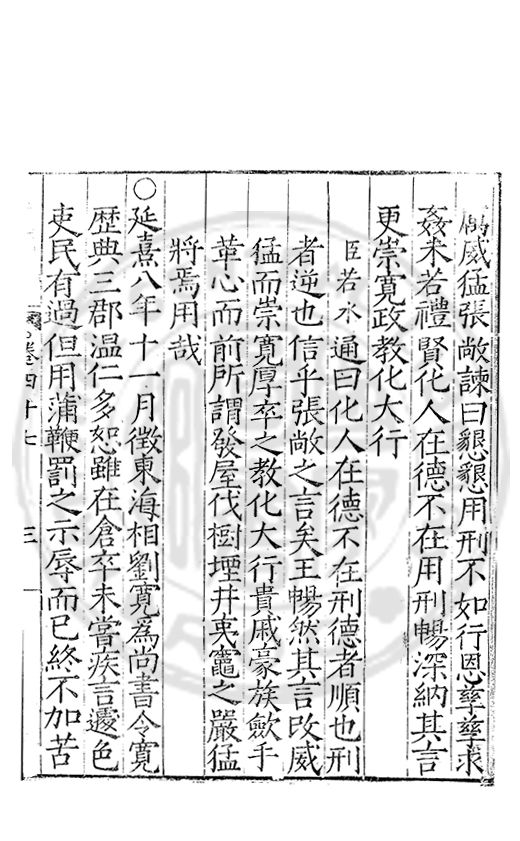 威猛張敞諫曰懇懇用刑不如行恩孳孳求
姦未若禮賢化人在德不在用刑暢深納其言
更崇寬政教化大行
臣若水通曰化人在德不在刑德者順也刑
者逆也信乎張敞之言矣王暢然其言改威
猛而崇寬厚卒之教化大行貴戚豪族歛手
革心而前所謂發屋伐樹堙井夷竈之嚴猛
將焉用哉
○延熹八年十一月徵東海相劉寬爲尚書令寬
歷典三郡溫仁多恕雖在倉卒未嘗疾言遽色
吏民有過但用蒲鞭罰之示辱而已終不加苦
卷四十七 三